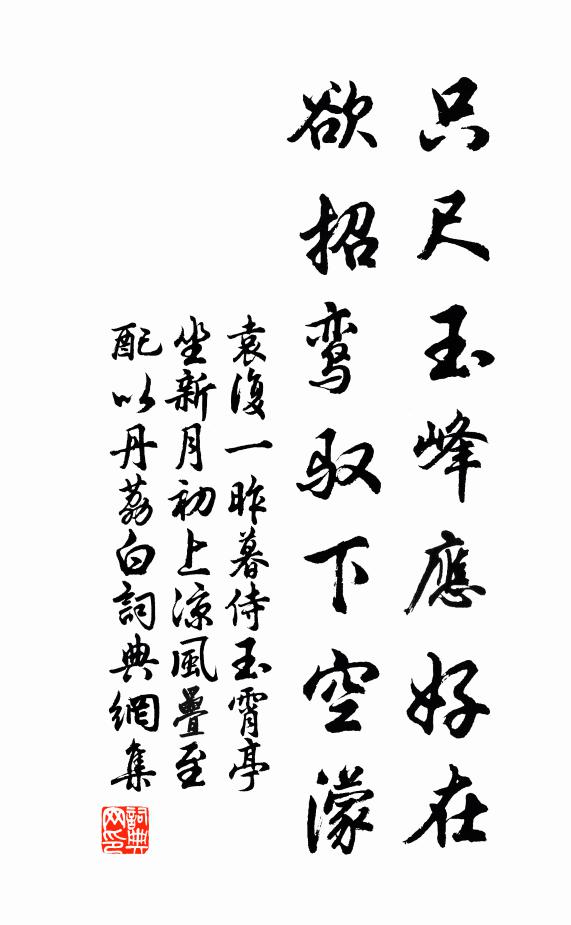 只尺玉峰應好在
欲招鸾驭下空濛
袁復一昨暮侍玉霄亭
坐新月初上凉風疊至
配以丹荔白詞典網集
詞典
网印